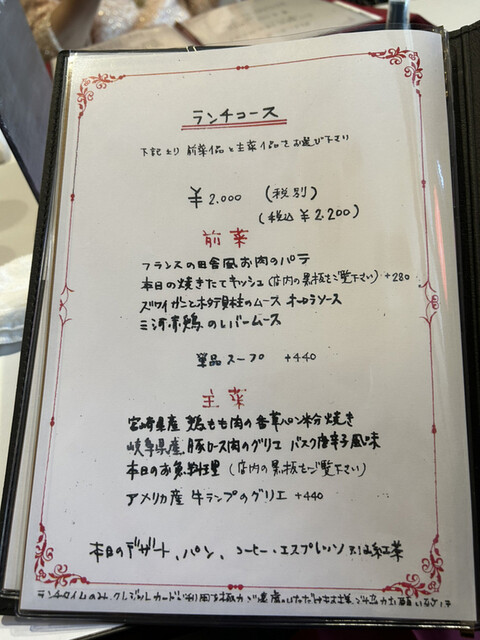 ランチコース
下記より 前菜1品と主菜1品をお選び下さい
¥2.000 (税別)
(税込 ¥2.200)
前菜
フランスの田舎風お肉のパテ
本日の焼きたてキッシュ(店内の黒板をご覧下さい) +280
ズワイガニとホタテ貝柱のムース オーロラソース
三河赤鶏のレバームース
単品スープ +440
主菜
宮崎県産 鶏もも肉の香草パン粉焼き
岐阜県産 豚ロース肉のグリエ バスク唐辛子風味
本日のお魚料理 (店内の黒板をご覧下さい)
アメリカ産 牛ランプのグリエ +440
本日のデザート、パン、コーヒー・エスプレッソ又は紅茶
ランチタイムのみ、クレジットカードご利用を極力ご遠慮いただけます様、ご協力お願い